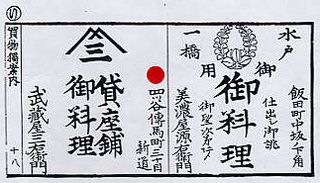 飯田町中坂下角
仕出し御誂
御料理
水戸
御用
一橋
美濃屋源右衛門
四ツ谷傳馬町三丁目
新道
三
貸座鋪
御料理
武蔵屋三右衛門
買物獨案内
十八